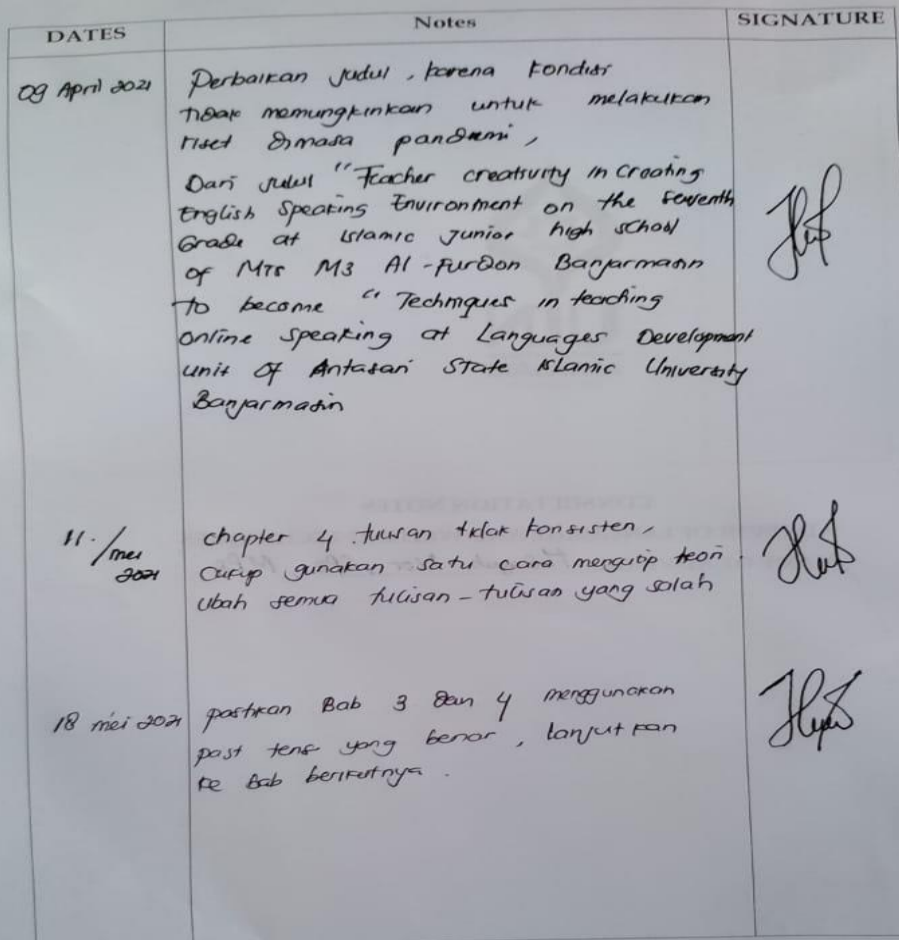 DATES
Notes
SIGNATURE
09 April 2021
Perbaikan judul, karena kondisi
tidak memungkinkan untuk melakukan
riset dimasa pandemi,
Dari judul "Teacher creativity in Creating
English Speaking Environment on the Seventh
Grade at Islamic Junior high school
of MTs M3 Al-Furqon Banjarmasin
to become "Techniques in teaching
online speaking at Languages Development
unit Of Antasari State Islamic University
Banjarmasin
11/mei 2021
chapter 4 tulisan tidak konsisten,
cukup gunakan satu cara mengutip teori.
Ubah semua tulisan-tulisan yang salah
18 mei 2021
pastikan Bab 3 dan 4 menggunakan
past tens yang benar, lanjutkan
ke Bab berikutnya.